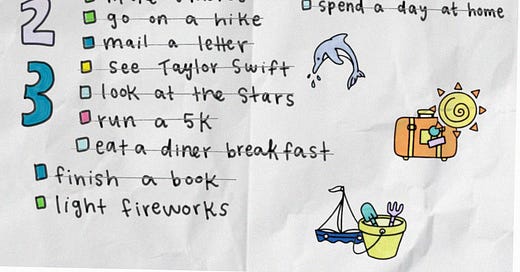 2
3
go on a hike
mail a letter
see Taylor Swift
look at the stars
run a 5K
eat a diner breakfast
finish a book
light fireworks
spend a day at home